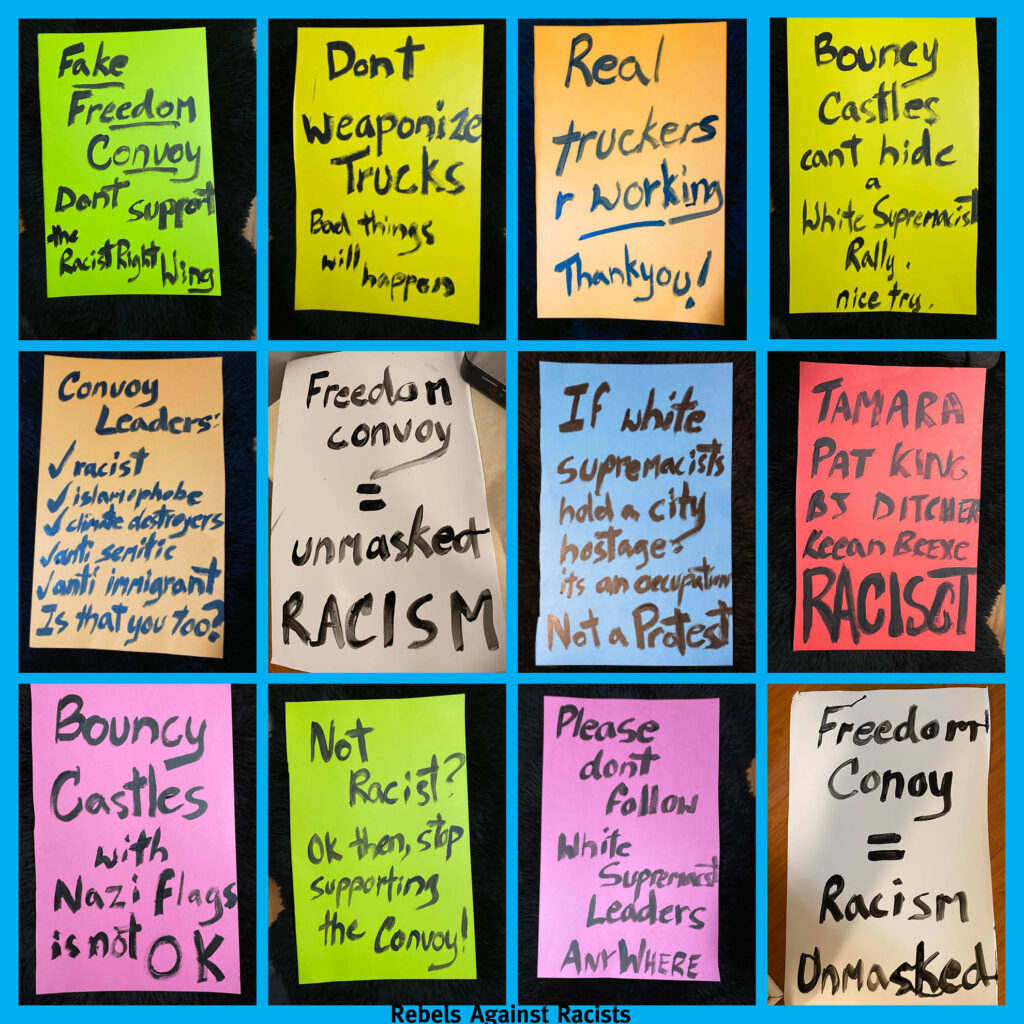 Fake
Freedom
Convoy
Dont support
the
Racist Right Wing
Dont
weaponize
Trucks
Bad things
will happen
Real
truckers
r working
Thankyou!
Bouncy
Castles
cant hide
a
White Supremacist
Rally.
nice try.
Convoy
Leaders:
✓ racist
✓ islamophobe
✓ climate destroyers
✓ anti semitic
✓ anti immigrant
Is that you too?
Freedom
convoy
=
unmasked
RACISM
If white
supremacists
hold a city
hostage:
its an occupation
Not a Protest
TAMARA
PAT KING
BJ DITCHER
RACIST
Bouncy
Castles
with
Nazi Flags
is not OK
Not
Racist?
Ok then, stop
supporting
the Convoy!
Please
dont
follow
White
Supremacist
Leaders
ANYWHERE
Freedom
Conoy
=
Racism
Unmasked
Rebels Against Racists